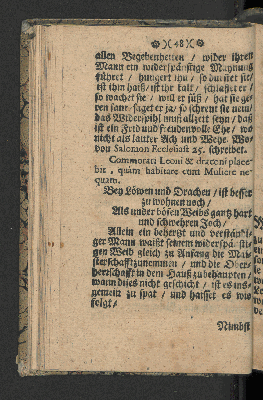 )( 48 )(
allen Begebenheiten / wider ihren
Mann ein widerspänstige Maynung
führet / hungert ihn / so durstet sie /
ist ihm haiß / ist ihr kalt / schlaffet er /
so wachet sie / will er süß / hat sie ge
ren saur / saget er ja / so schreyt sie nein /
das Widerspihl muß allzeit seyn / daß
ist ein Frid und freudenvolle Ehe / wo
nicht als lauter Ach und Wehe. Wo-
von Salomon Ecclesiast. 25. schreibet.
Commorari Leoni & draconi place-
bit, quàm habitare cum Muliere ne-
quam.
Bey Löwen und Drachen / ist besser
zu wohnen noch /
Als under bösen Weibs gantz hart
und schwehren Joch /
Allein ein behertzt und verständi-
ger Mann waißt seinem widerspä sti-
gen Weib gleich zu Anfang die Mai-
sterschafft zunemmen / und die Ober-
herrschafft in dem Hauß zubehaupten /
wann dises nicht geschicht / ist es ins-
gemein zu spat / und haisset es wie
folgt /
Nimbst